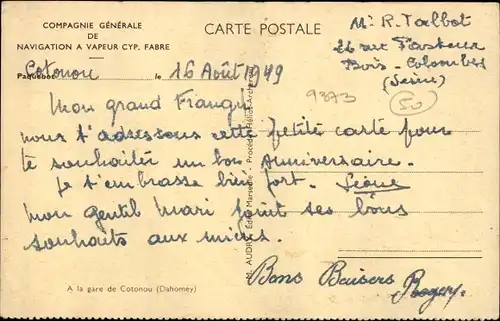 COMPAGNIE GÉNÉRALE
DE
NAVIGATION A VAPEUR CYP. FABRE
CARTE POSTALE
Mr R. Talbot
26 rue Pasteur
Bois-Colombes
(Seine)
Paquebot Cotonou le 16 Août 1949
9373
50
Mon grand
nous t'adressons cette petite carte pour
te souhaiter un bon Anniversaire.
Je t'embrasse bien fort.
mon gentil Mari joint ses bons
souhaits aux miens.
Bons Baisers
Roger
A la gare de Cotonou (Dahomey)